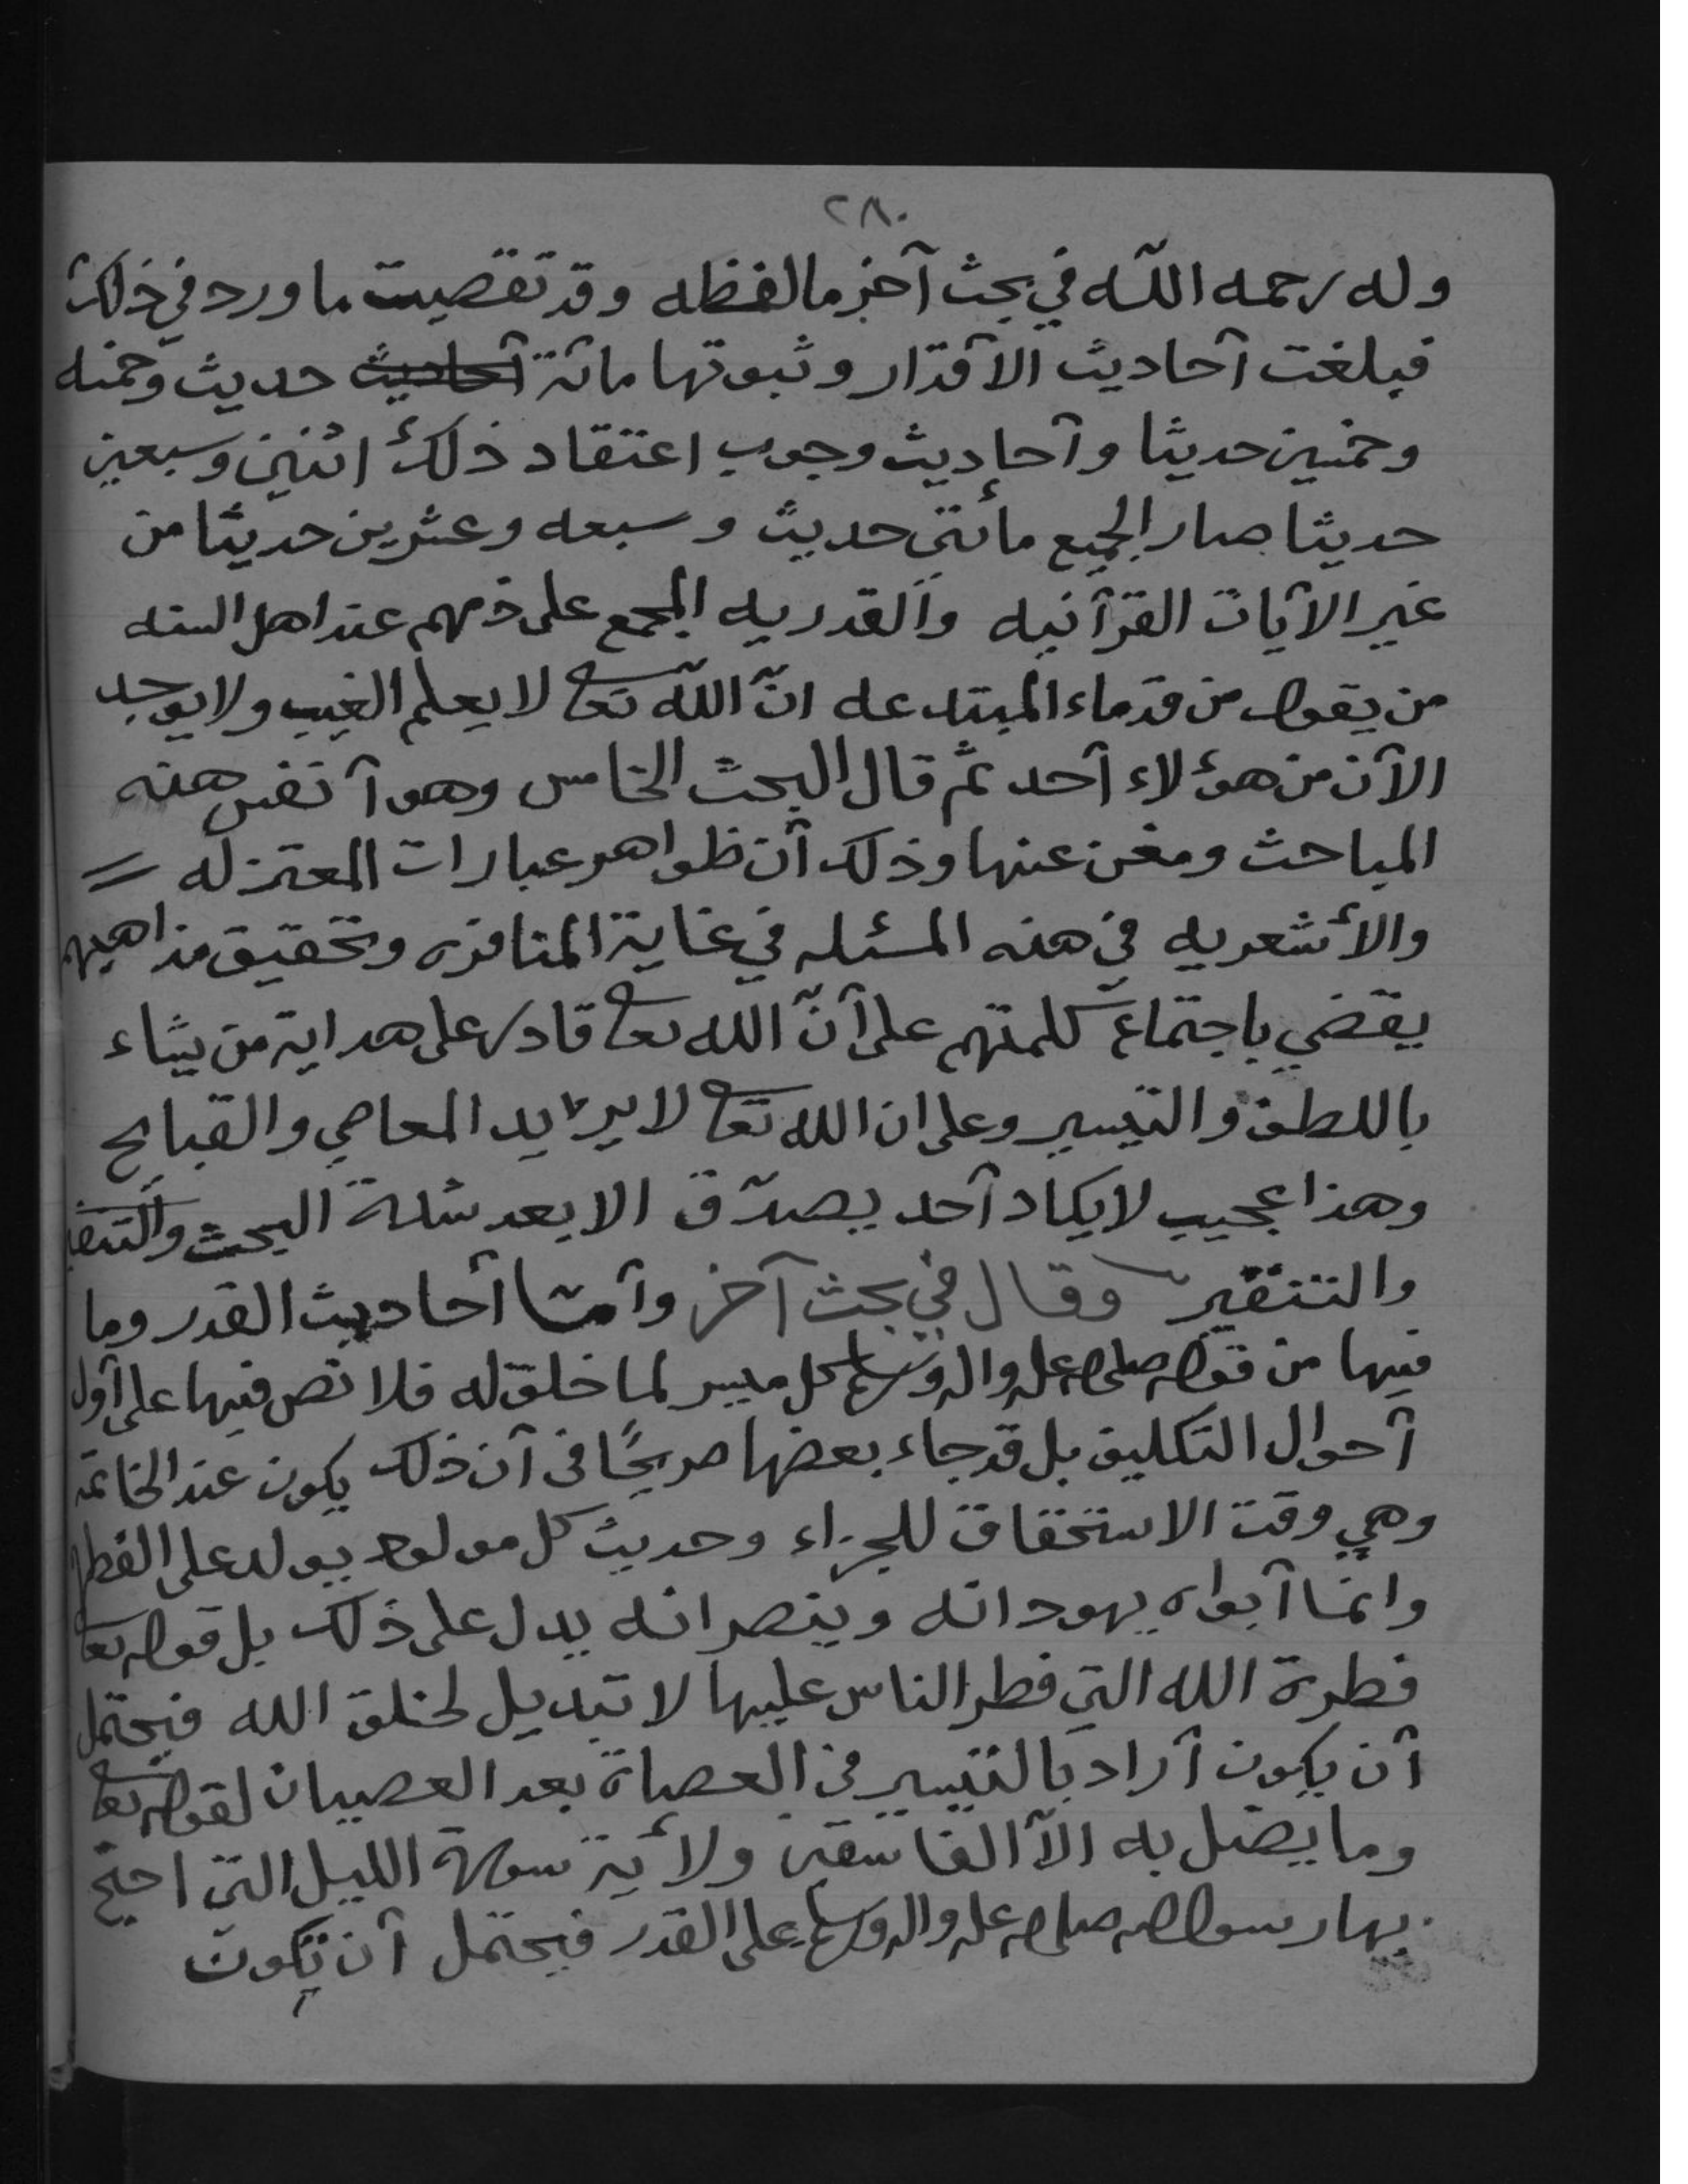 ٢٨٠
وله رحمه الله في بحث آخر مالفظه وقد تقصيت ما ورد في ذلك
فبلغت آحاديث الآقدار وثبوتها مائة آحاديث حديث وخمسه
وخمسين حديثا وآحاديث وجوب اعتقاد ذلك اثنين وسبعين
حديثا صار الجميع مأتي حديث وسبعه وعشرين حديثا من
غير الآيات القرآنيه والقدريه المجمع على ذمهم عند اهل السنه
من يقول من قدماء المبتدعه انّ الله تعا لا يعلم الغيب ولا يوجد
الآن من هؤلاء آحد ثم قال البحث الخامس وهو آنفس هذه
المباحث ومغن عنها وذلك آن ظواهر عبارات المعتزله =
والأشعريه في هذه المسئله في غاية المنافره وتحقيق مذاهبهم
يقضي باجتماع كلمتهم على آنّ الله تعا قادر على هداية من يشاء
باللطف والتيسير وعلى ان الله تعا لا يريد المعاصي والقبايح
وهذا عجيب لا يكاد آحد يصدّق الا بعد شدة البحث والتنقير
والتنقير وقال في بحث آخر وآمّا آحاديث القدر وما
فيها من قوله صلى الله عليه واله وسلم كل ميسر لما خلق له فلا نص فيها على آول
آحوال التكليف بل قد جاء بعضها صريحًا في آن ذلك يكون عند الخاتمة
وهي وقت الاستحقاق للجزاء وحديث كل مولود يولد على الفطره
وانما آبواه يهودانه وينصرانه يدل على ذلك بل قوله تعا
فطرة الله التي فطر الناس عليها لا تبديل لخلق الله فيحتمل
آن يكون آراد بالتيسير في العصاة بعد العصيان لقوله تعا
وما يضل به الآ الفاسقين ولأية سورة الليل التي احتج
بها رسول الله صلى الله عليه واله وسلم على القدر فيحتمل آن تكون